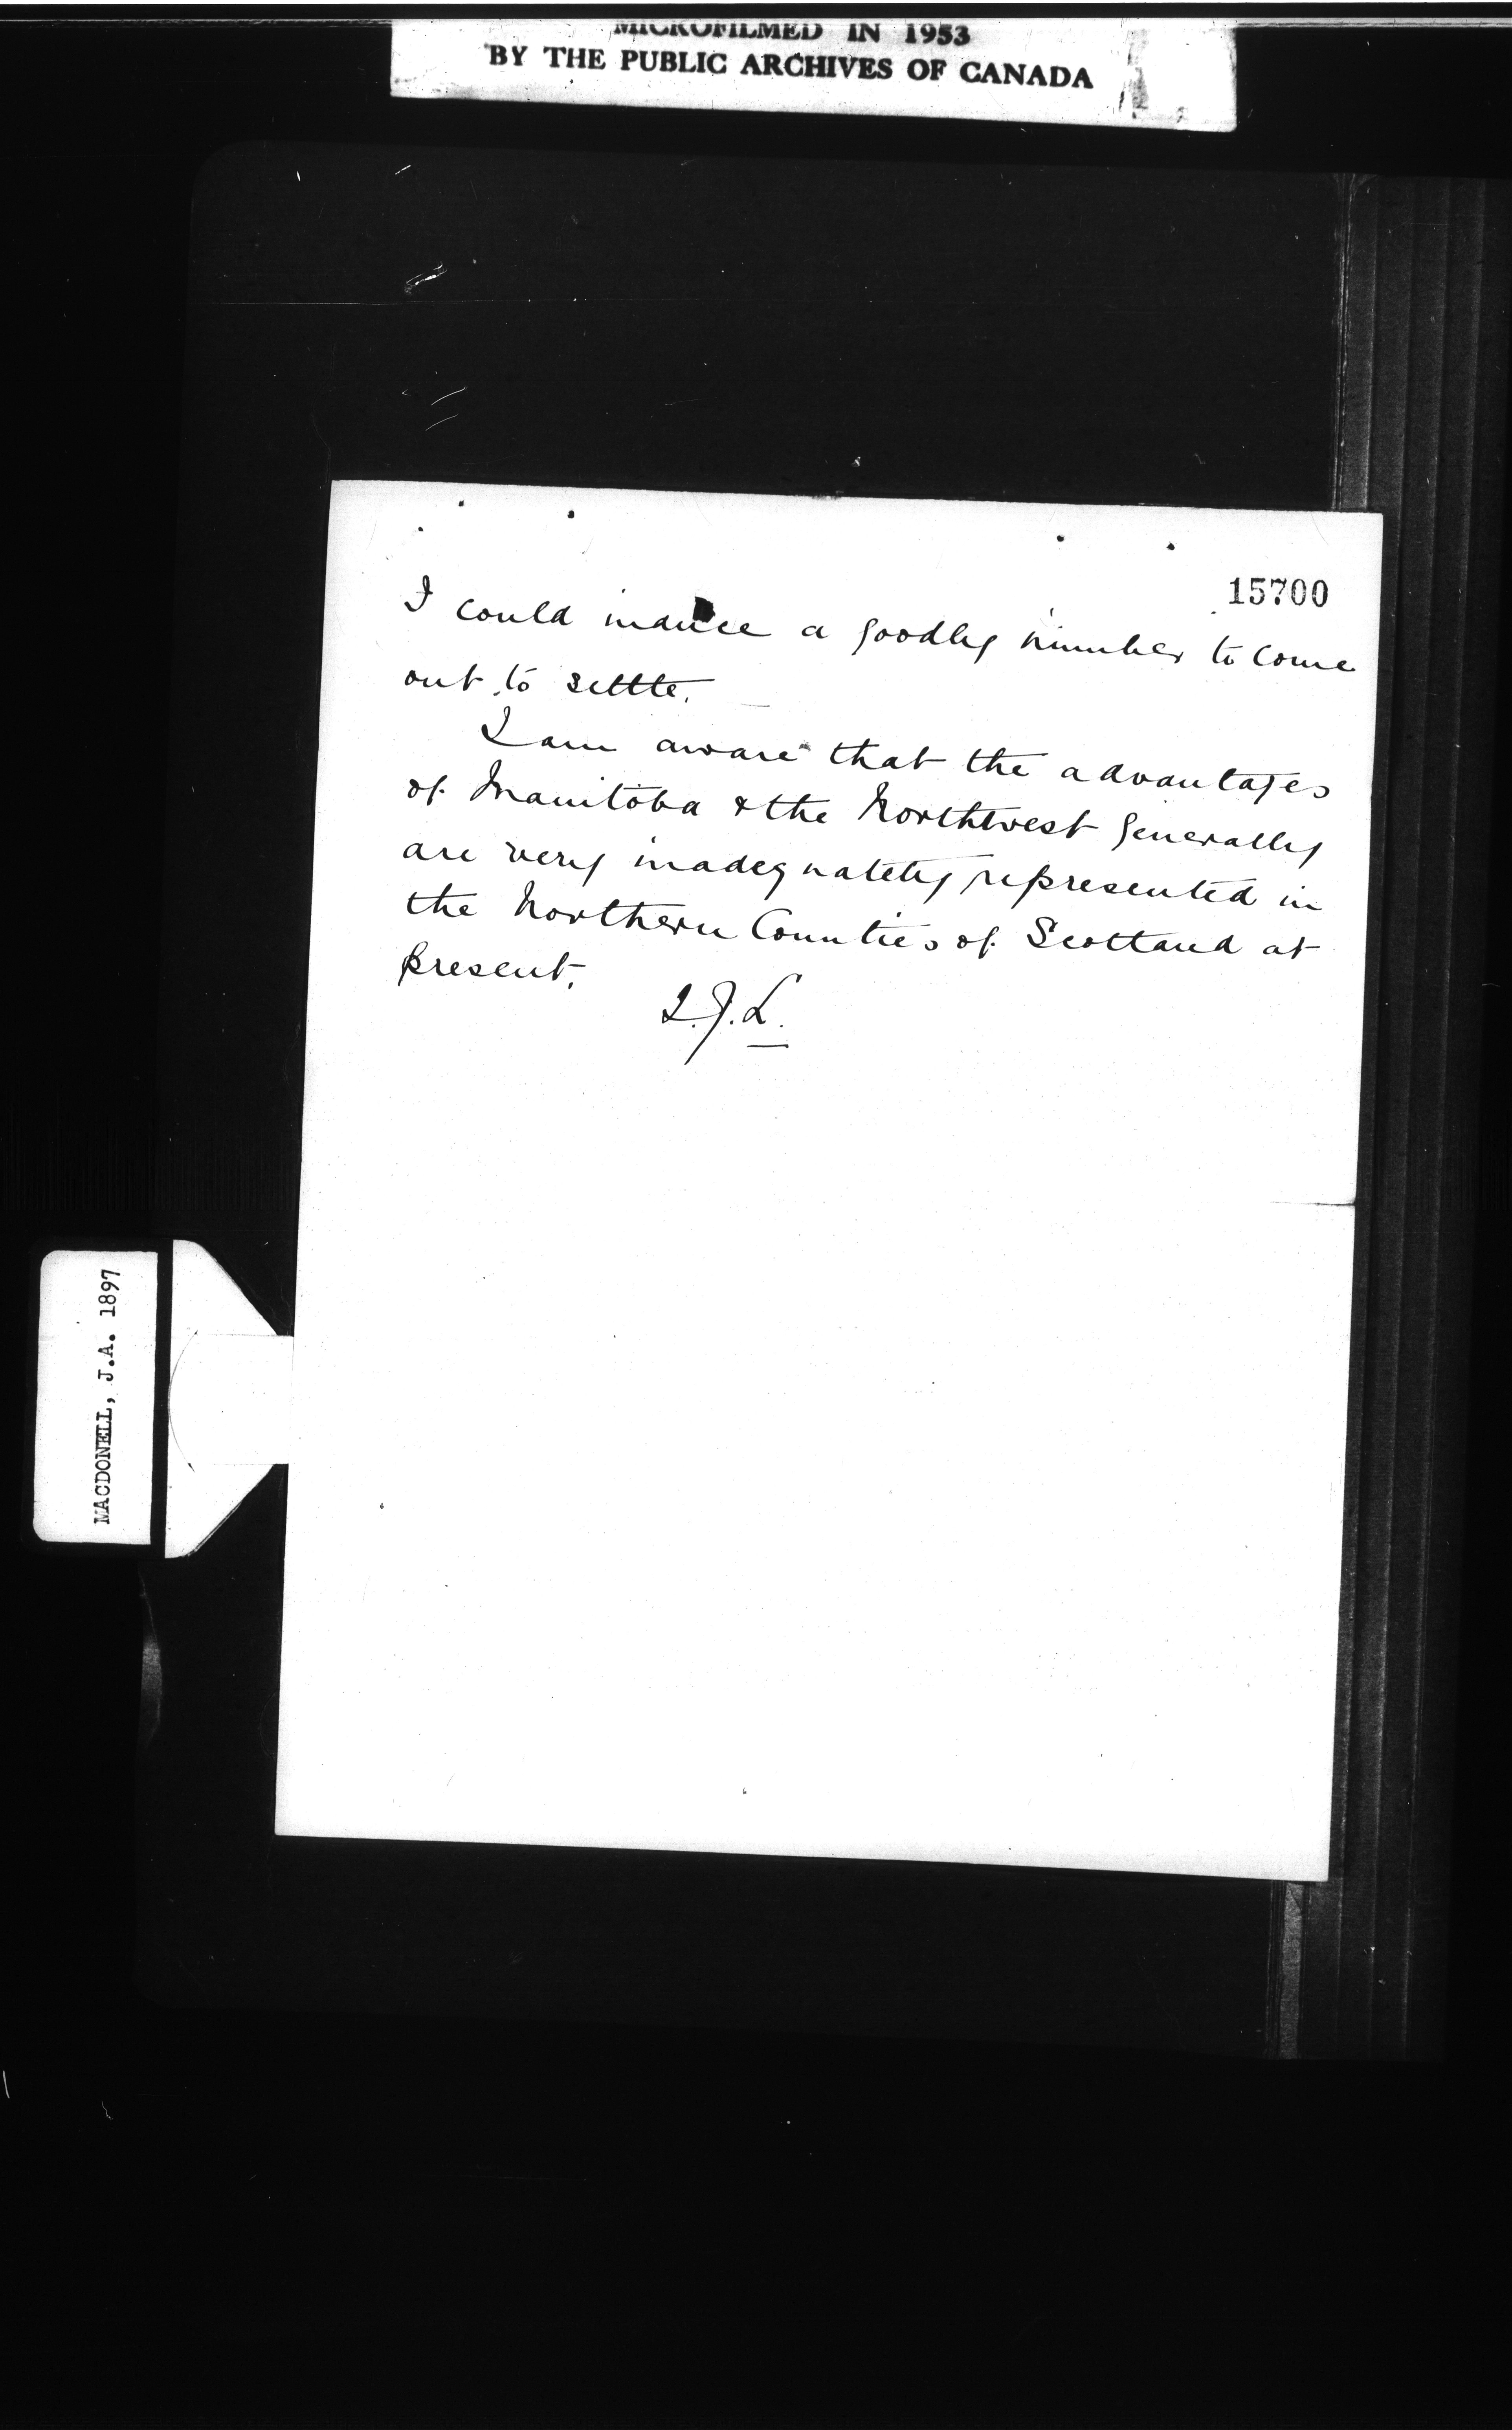 MICROFILMED IN 1953
BY THE PUBLIC ARCHIVES OF CANADA
15700
I could induce a goodly number to come
out to settle. —
I am aware that the advantages
of Manitoba & the Northwest generally
are very inadequately represented in
the Northern Counties of Scotland at
present.
MACDONELL, J.A. 1897